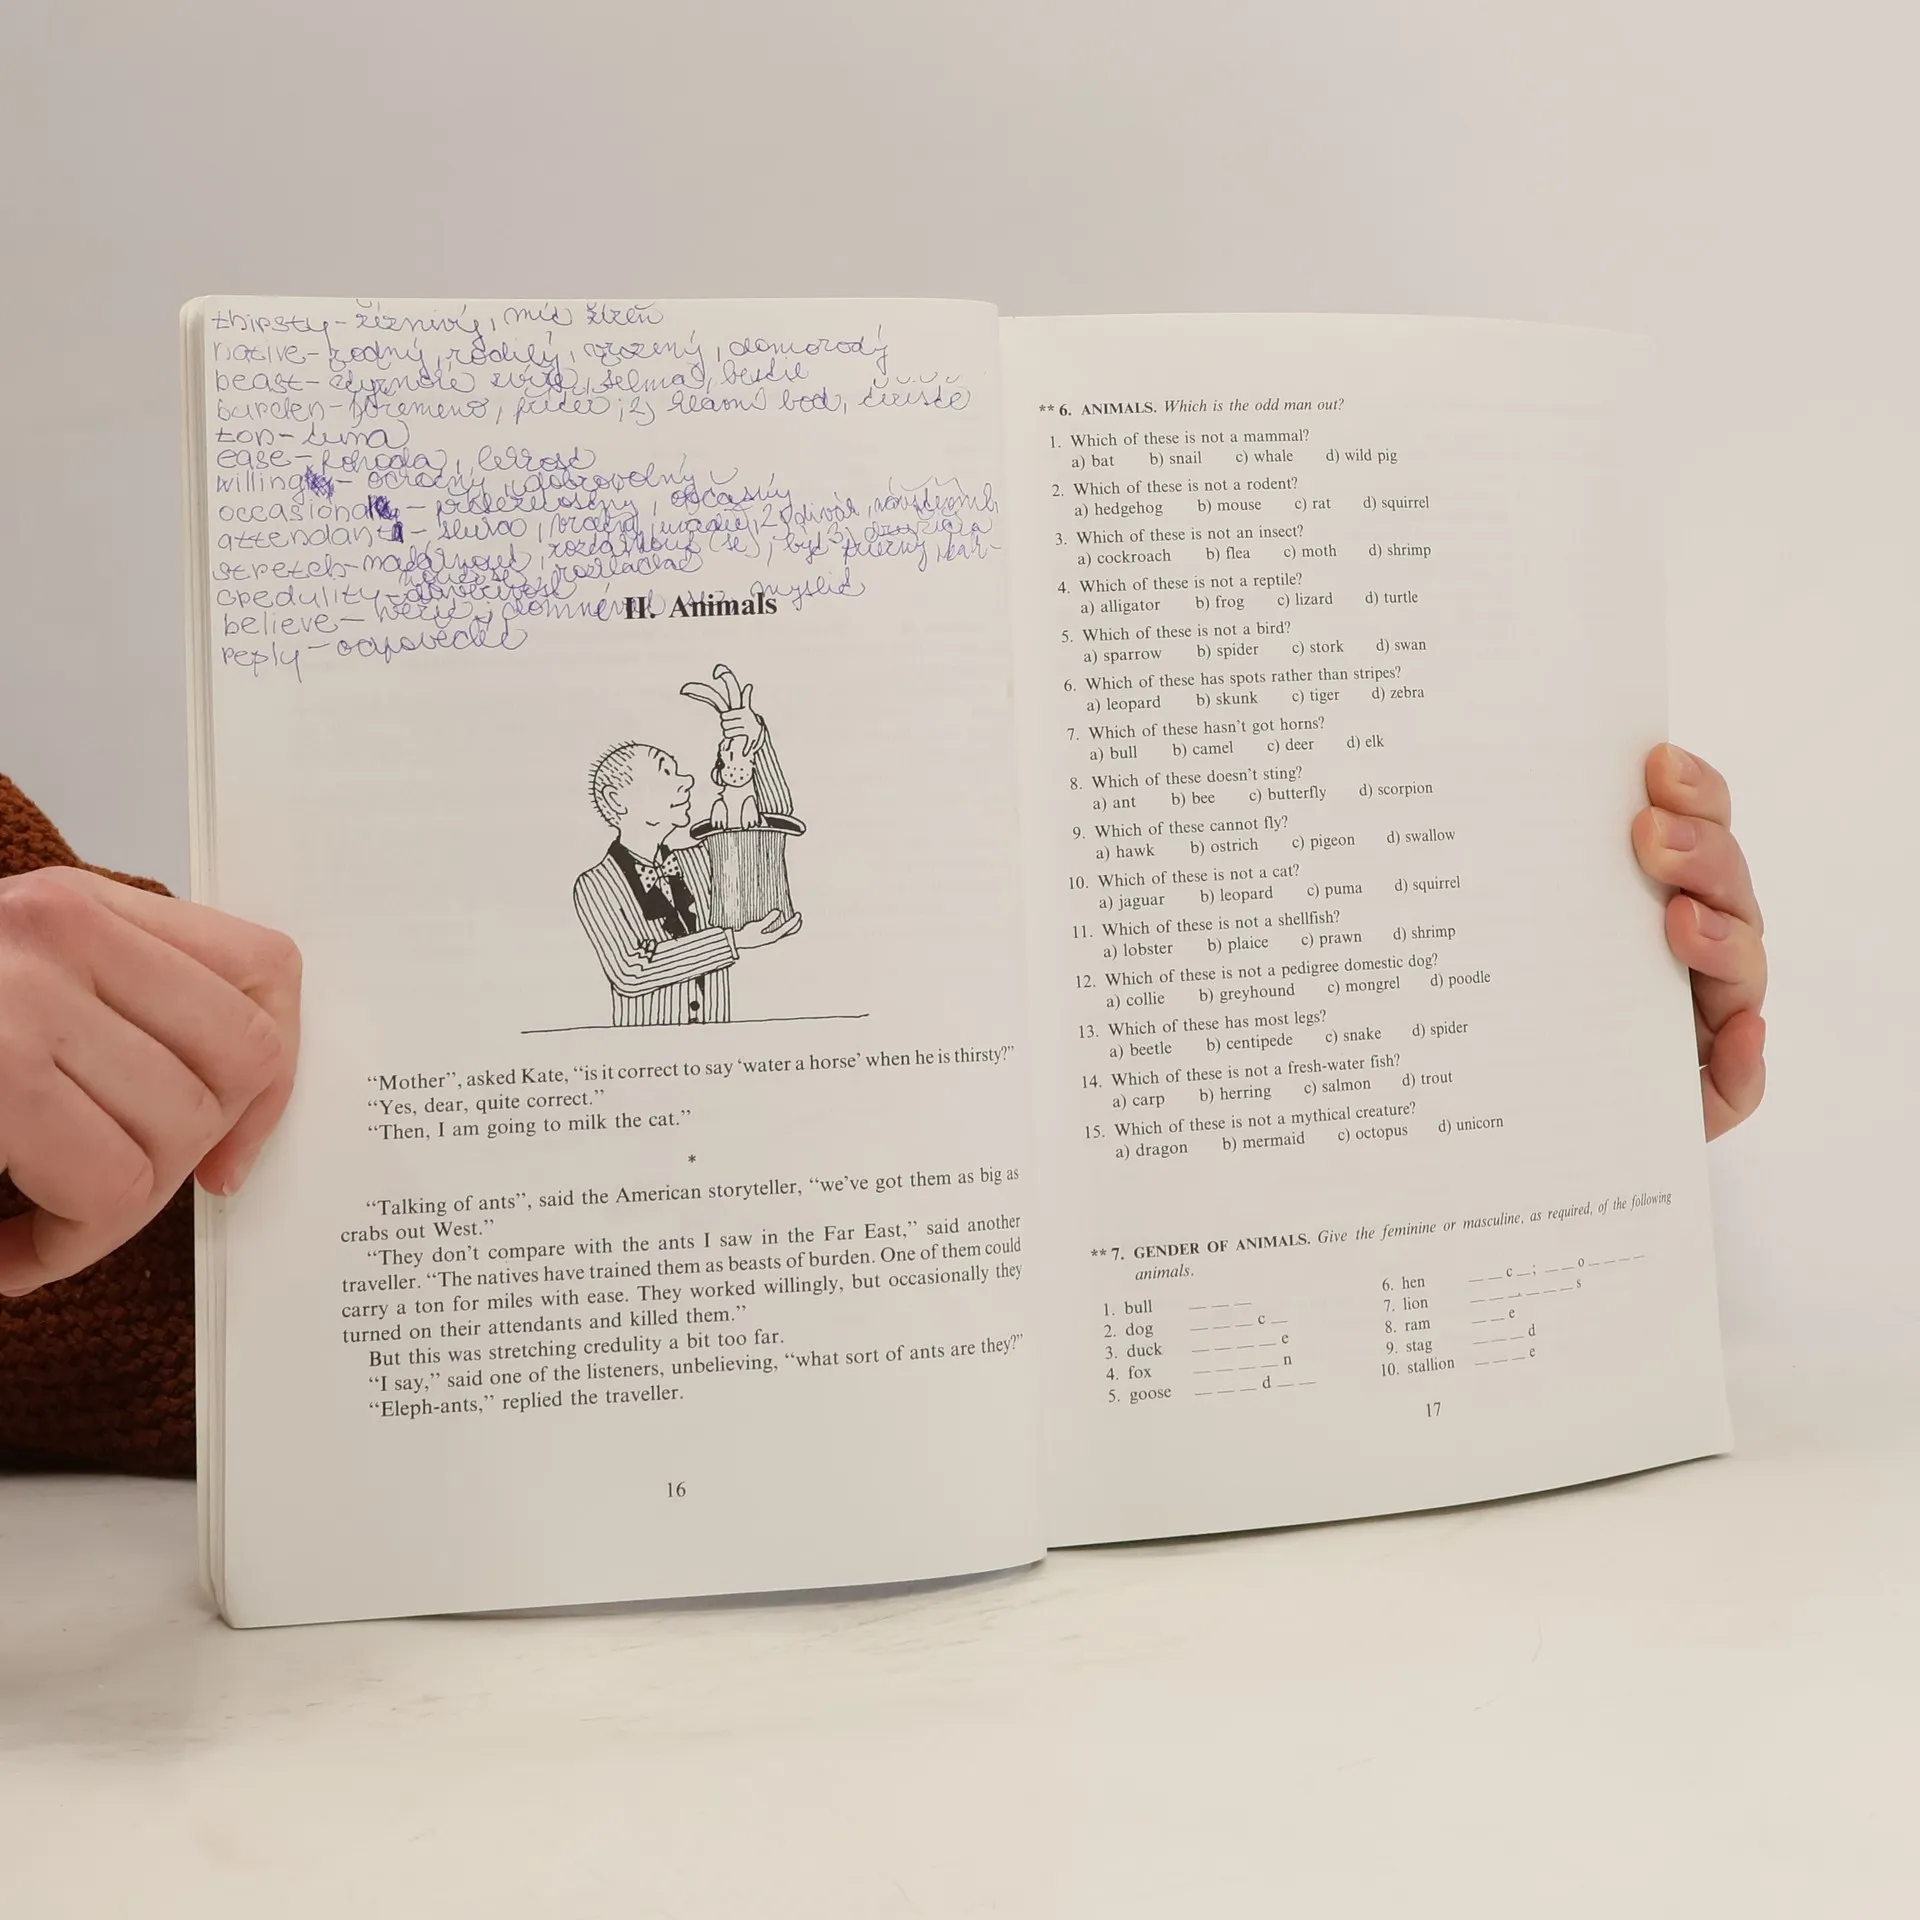 thirsty - žíznivý, mít žízeň
native - rodný, rodilý, vrozený, domorodý
beast - zvíře, šelma, bestie
burden - břemeno, přítěž; 2) hlavní bod,
ton - tuna
ease - pohoda, lehkost
willing - ochotný, dobrovolný
occasional - příležitostný, občasný
attendant - sluha,
stretch -
credulity - důvěřivost
believe - věřit; domnívat se, myslit
reply - odpovědět
II. Animals
“Mother”, asked Kate, “is it correct to say ‘water a horse’ when he is thirsty?”
“Yes, dear, quite correct.”
“Then, I am going to milk the cat.”
*
“Talking of ants”, said the American storyteller, “we’ve got them as big as
crabs out West.”
“They don’t compare with the ants I saw in the Far East,” said another
traveller. “The natives have trained them as beasts of burden. One of them could
carry a ton for miles with ease. They worked willingly, but occasionally they
turned on their attendants and killed them.”
But this was stretching credulity a bit too far.
“I say,” said one of the listeners, unbelieving, “what sort of ants are they?”
“Eleph-ants,” replied the traveller.
16
** 6. ANIMALS. Which is the odd man out?
1. Which of these is not a mammal?
a) bat b) snail c) whale d) wild pig
2. Which of these is not a rodent?
a) hedgehog b) mouse c) rat d) squirrel
3. Which of these is not an insect?
a) cockroach b) flea c) moth d) shrimp
4. Which of these is not a reptile?
a) alligator b) frog c) lizard d) turtle
5. Which of these is not a bird?
a) sparrow b) spider c) stork d) swan
6. Which of these has spots rather than stripes?
a) leopard b) skunk c) tiger d) zebra
7. Which of these hasn’t got horns?
a) bull b) camel c) deer d) elk
8. Which of these doesn’t sting?
a) ant b) bee c) butterfly d) scorpion
9. Which of these cannot fly?
a) hawk b) ostrich c) pigeon d) swallow
10. Which of these is not a cat?
a) jaguar b) leopard c) puma d) squirrel
11. Which of these is not a shellfish?
a) lobster b) plaice c) prawn d) shrimp
12. Which of these is not a pedigree domestic dog?
a) collie b) greyhound c) mongrel d) poodle
13. Which of these has most legs?
a) beetle b) centipede c) snake d) spider
14. Which of these is not a fresh-water fish?
a) carp b) herring c) salmon d) trout
15. Which of these is not a mythical creature?
a) dragon b) mermaid c) octopus d) unicorn
** 7. GENDER OF ANIMALS. Give the feminine or masculine, as required, of the following
animals.
1. bull _ _ _
2. dog _ _ _ c _
3. duck _ _ _ _ e
4. fox _ _ _ _ n
5. goose _ _ _ d _ _
6. hen _ _ c _; _ _ o _ _ _ _
7. lion _ _ _ _ _ _ s
8. ram _ _ e
9. stag _ _ _ d
10. stallion _ _ _ e
17